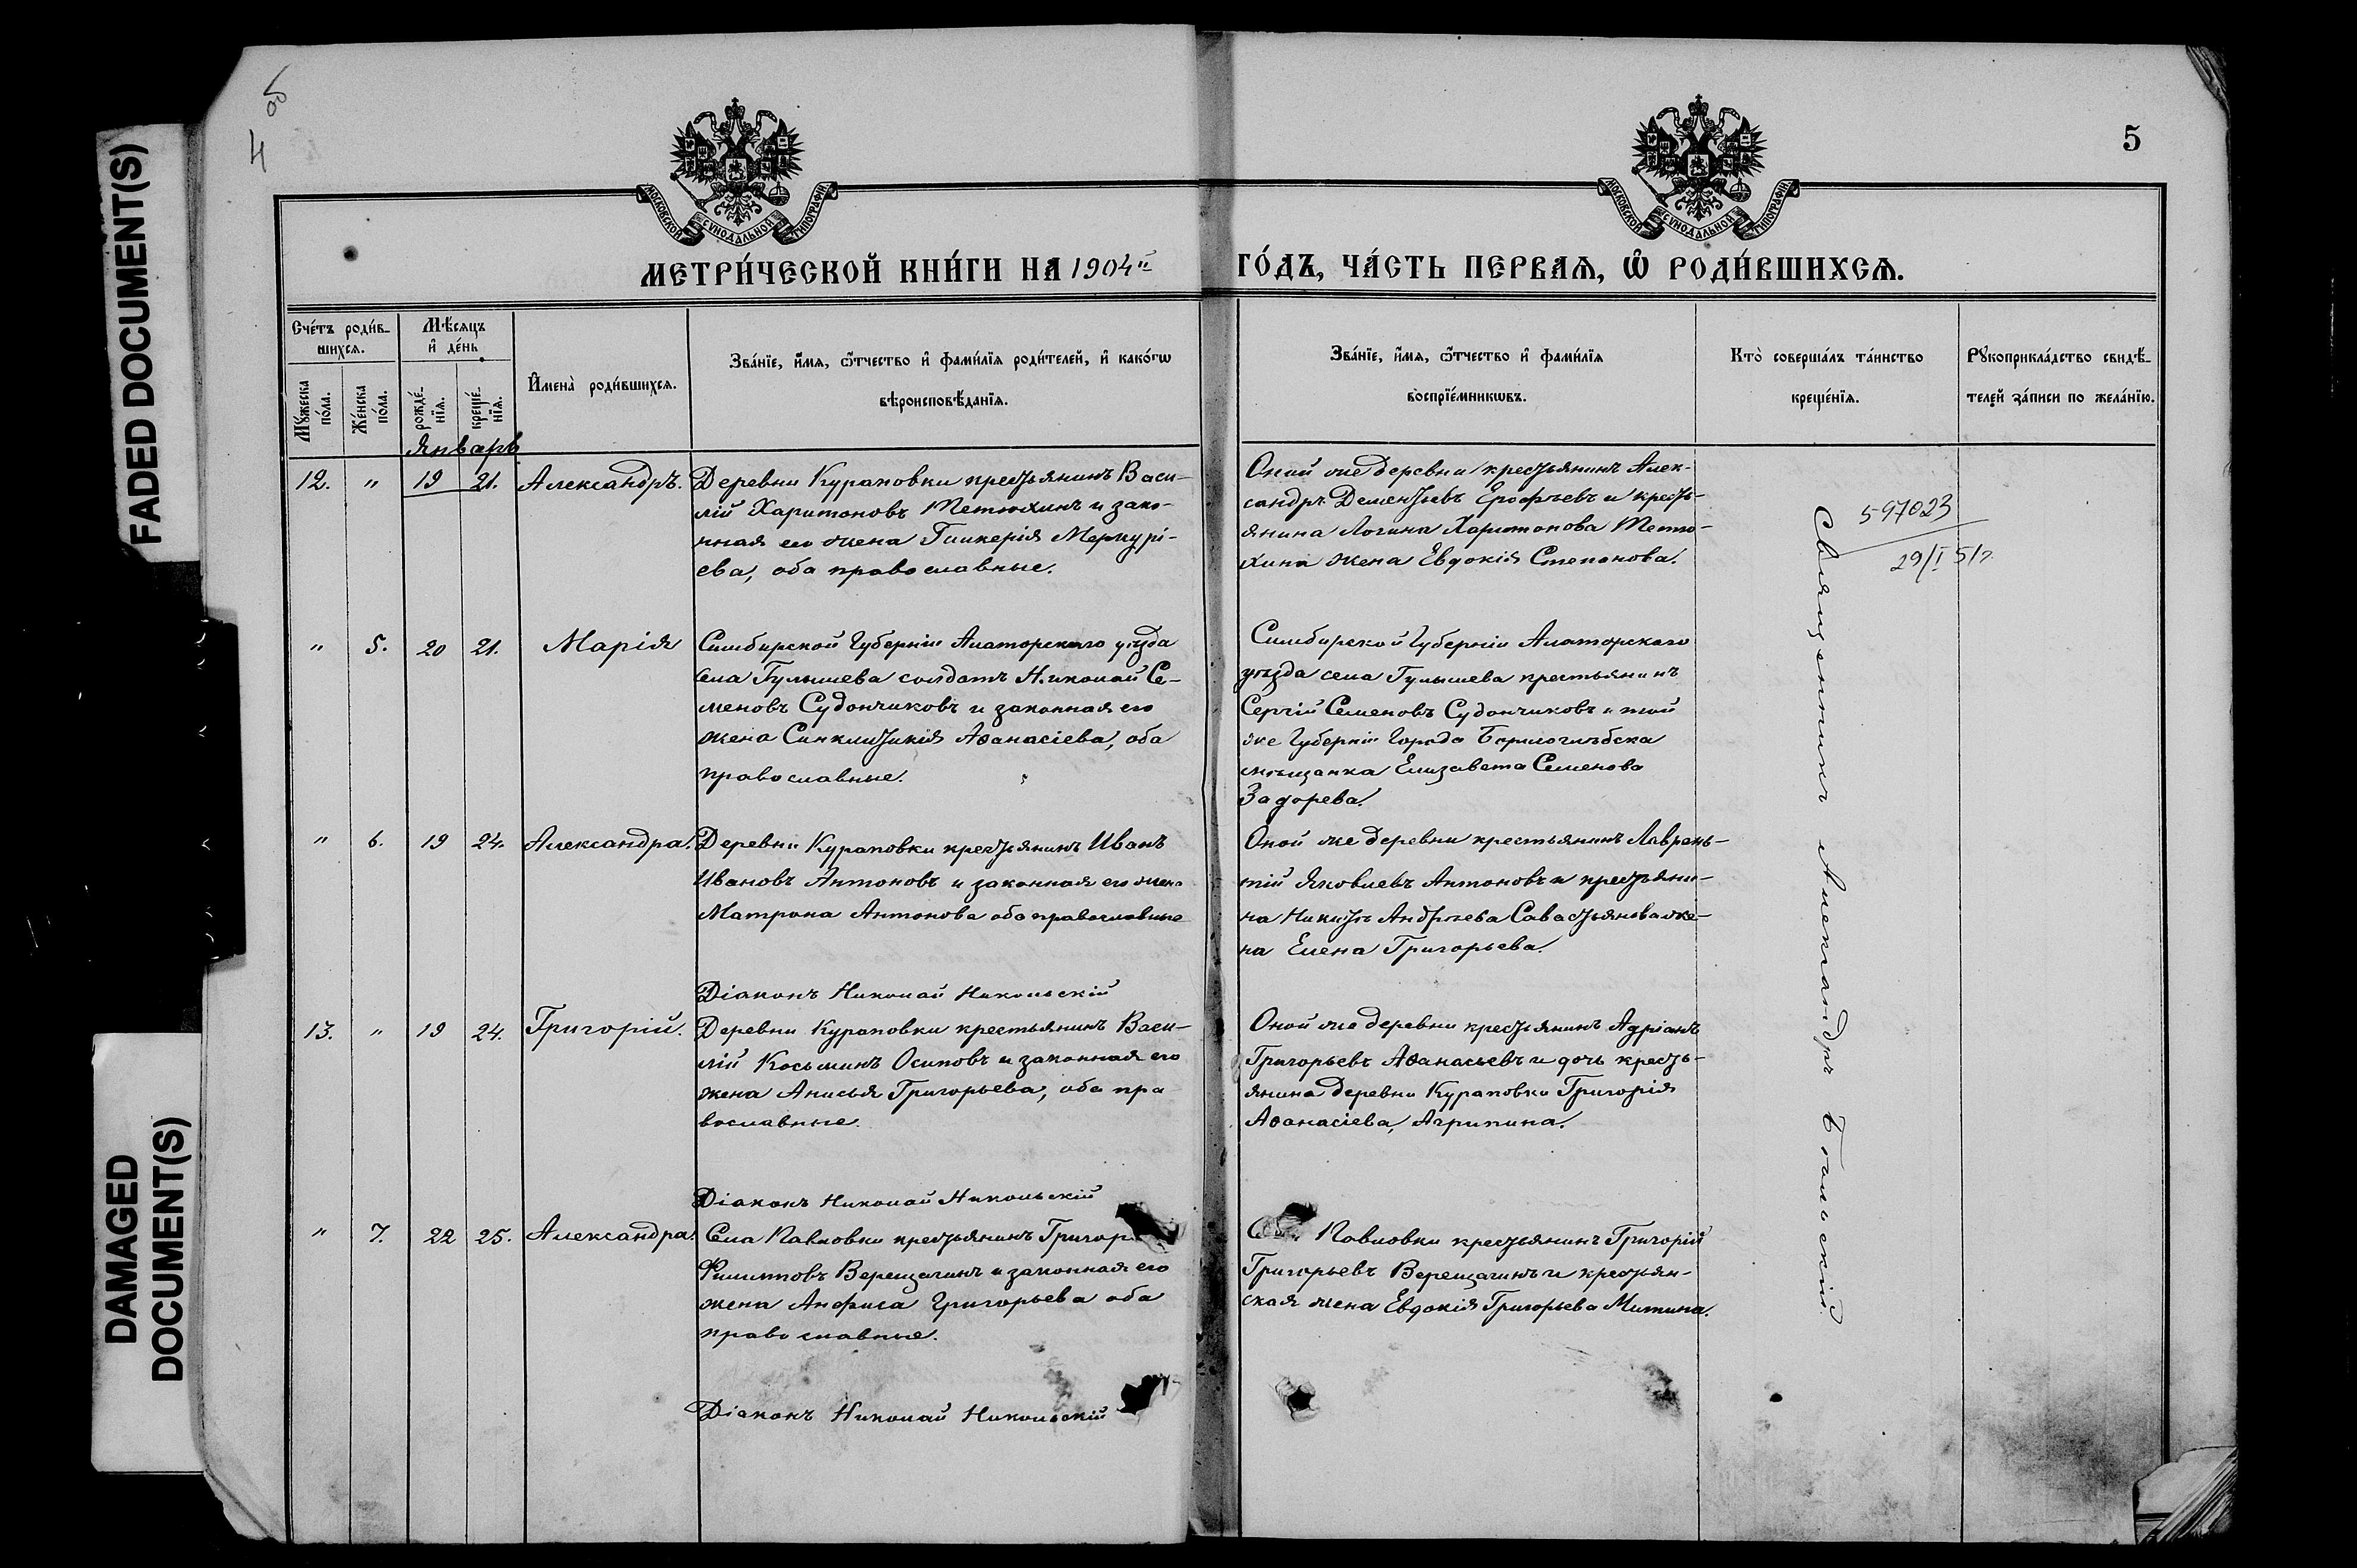 FADED DOCUMENT(S)
DAMAGED
DOCUMENT(S)
4 об
5
МОСКОВСКОЙ СѴНОДАЛЬНОЙ ТИПОГРАФІИ
МОСКОВСКОЙ СѴНОДАЛЬНОЙ ТИПОГРАФІИ
МЕТРИ́ЧЕСКОЙ КНИ́ГИ НА 1904й ГО́ДЪ, ЧА́СТЬ ПЕРВАѦ, Ѡ РОДИ́ВШИХСѦ.
Сче́тъ роди́в-
шихсѧ.
Мꙋ́жеска
по́ла.
Же́нска
по́ла.
Мѣ́сяцъ
и де́нь
рожде́-
нїѧ.
креще́-
нїѧ.
Имена̀ роди́вшихсѧ.
Зва́нїе, и́мѧ, ѻ҆́тчество и фами́лїѧ роди́телей, и како́гѡ
вѣроисповѣ́данїѧ.
Зва́нїе, и́мѧ, ѻ҆́тчество и фами́лїѧ
воспрїе́мникѡвъ.
Кто̀ соверша́лъ та́инство
креще́нїѧ.
Рꙋкоприкла́дство свидѣ́-
телей за́писи по жела́нїю.
Январь
12. " 19 21. Александръ.
Деревни Курановки крестьянинъ Васи-
лій Харитоновъ Тетюхинъ и зако-
нная его жена Гликерія Меркурі-
ева, оба православные.
Оной же деревни крестьянинъ Алек-
сандръ Дементьевъ Ерофѣевъ и кресть-
янина Логина Харитонова Тетю-
хина жена Евдокія Степанова.
597023
29/I 51г
" 5. 20 21. Марія
Симбирской Губерніи Алаторскаго уѣзда
села Гулышева солдатъ Николай Се-
меновъ Судончиковъ и законная его
жена Синклитикія Аѳанасіева, оба
православные.
Симбирской Губерніи Алаторскаго
уѣзда села Гулышева крестьянинъ
Сергій Семеновъ Судончиковъ и той
же Губерніи Города Борисоглѣбска
мѣщанка Елизавета Семенова
Задорева.
" 6. 19 24. Александра.
Деревни Курановки крестьянинъ Иванъ
Ивановъ Антоновъ и законная его жена
Матрона Антонова оба православные
Оной же деревни крестьянинъ Лаврень-
тій Яковлевъ Антоновъ и крестьяни-
на Никиты Андреева Савастьянова же-
на Елена Григорьева.
Діаконъ Николай Никольскій
13. " 19 24. Григорій.
Деревни Курановки крестьянинъ Васи-
лій Косьминъ Осиповъ и законная его
жена Анисья Григорьева, оба пра
вославные.
Оной же деревни крестьянинъ Адріанъ
Григорьевъ Аѳанасьевъ и дочь кресть-
янина деревни Курановки Григорія
Аѳанасіева, Агрипина.
Діаконъ Николай Никольскій
" 7. 22 25. Александра.
Села Павловки крестьянинъ Григор
Филиповъ Верещагинъ и законная его
жена Анфиса Григорьева оба
православные.
Павловки крестьянинъ Григорій
Григорьевъ Верещагинъ и крестьян-
ская жена Евдокія Григорьева Митина.
Діаконъ Николай Никольскій
Священникъ Александръ